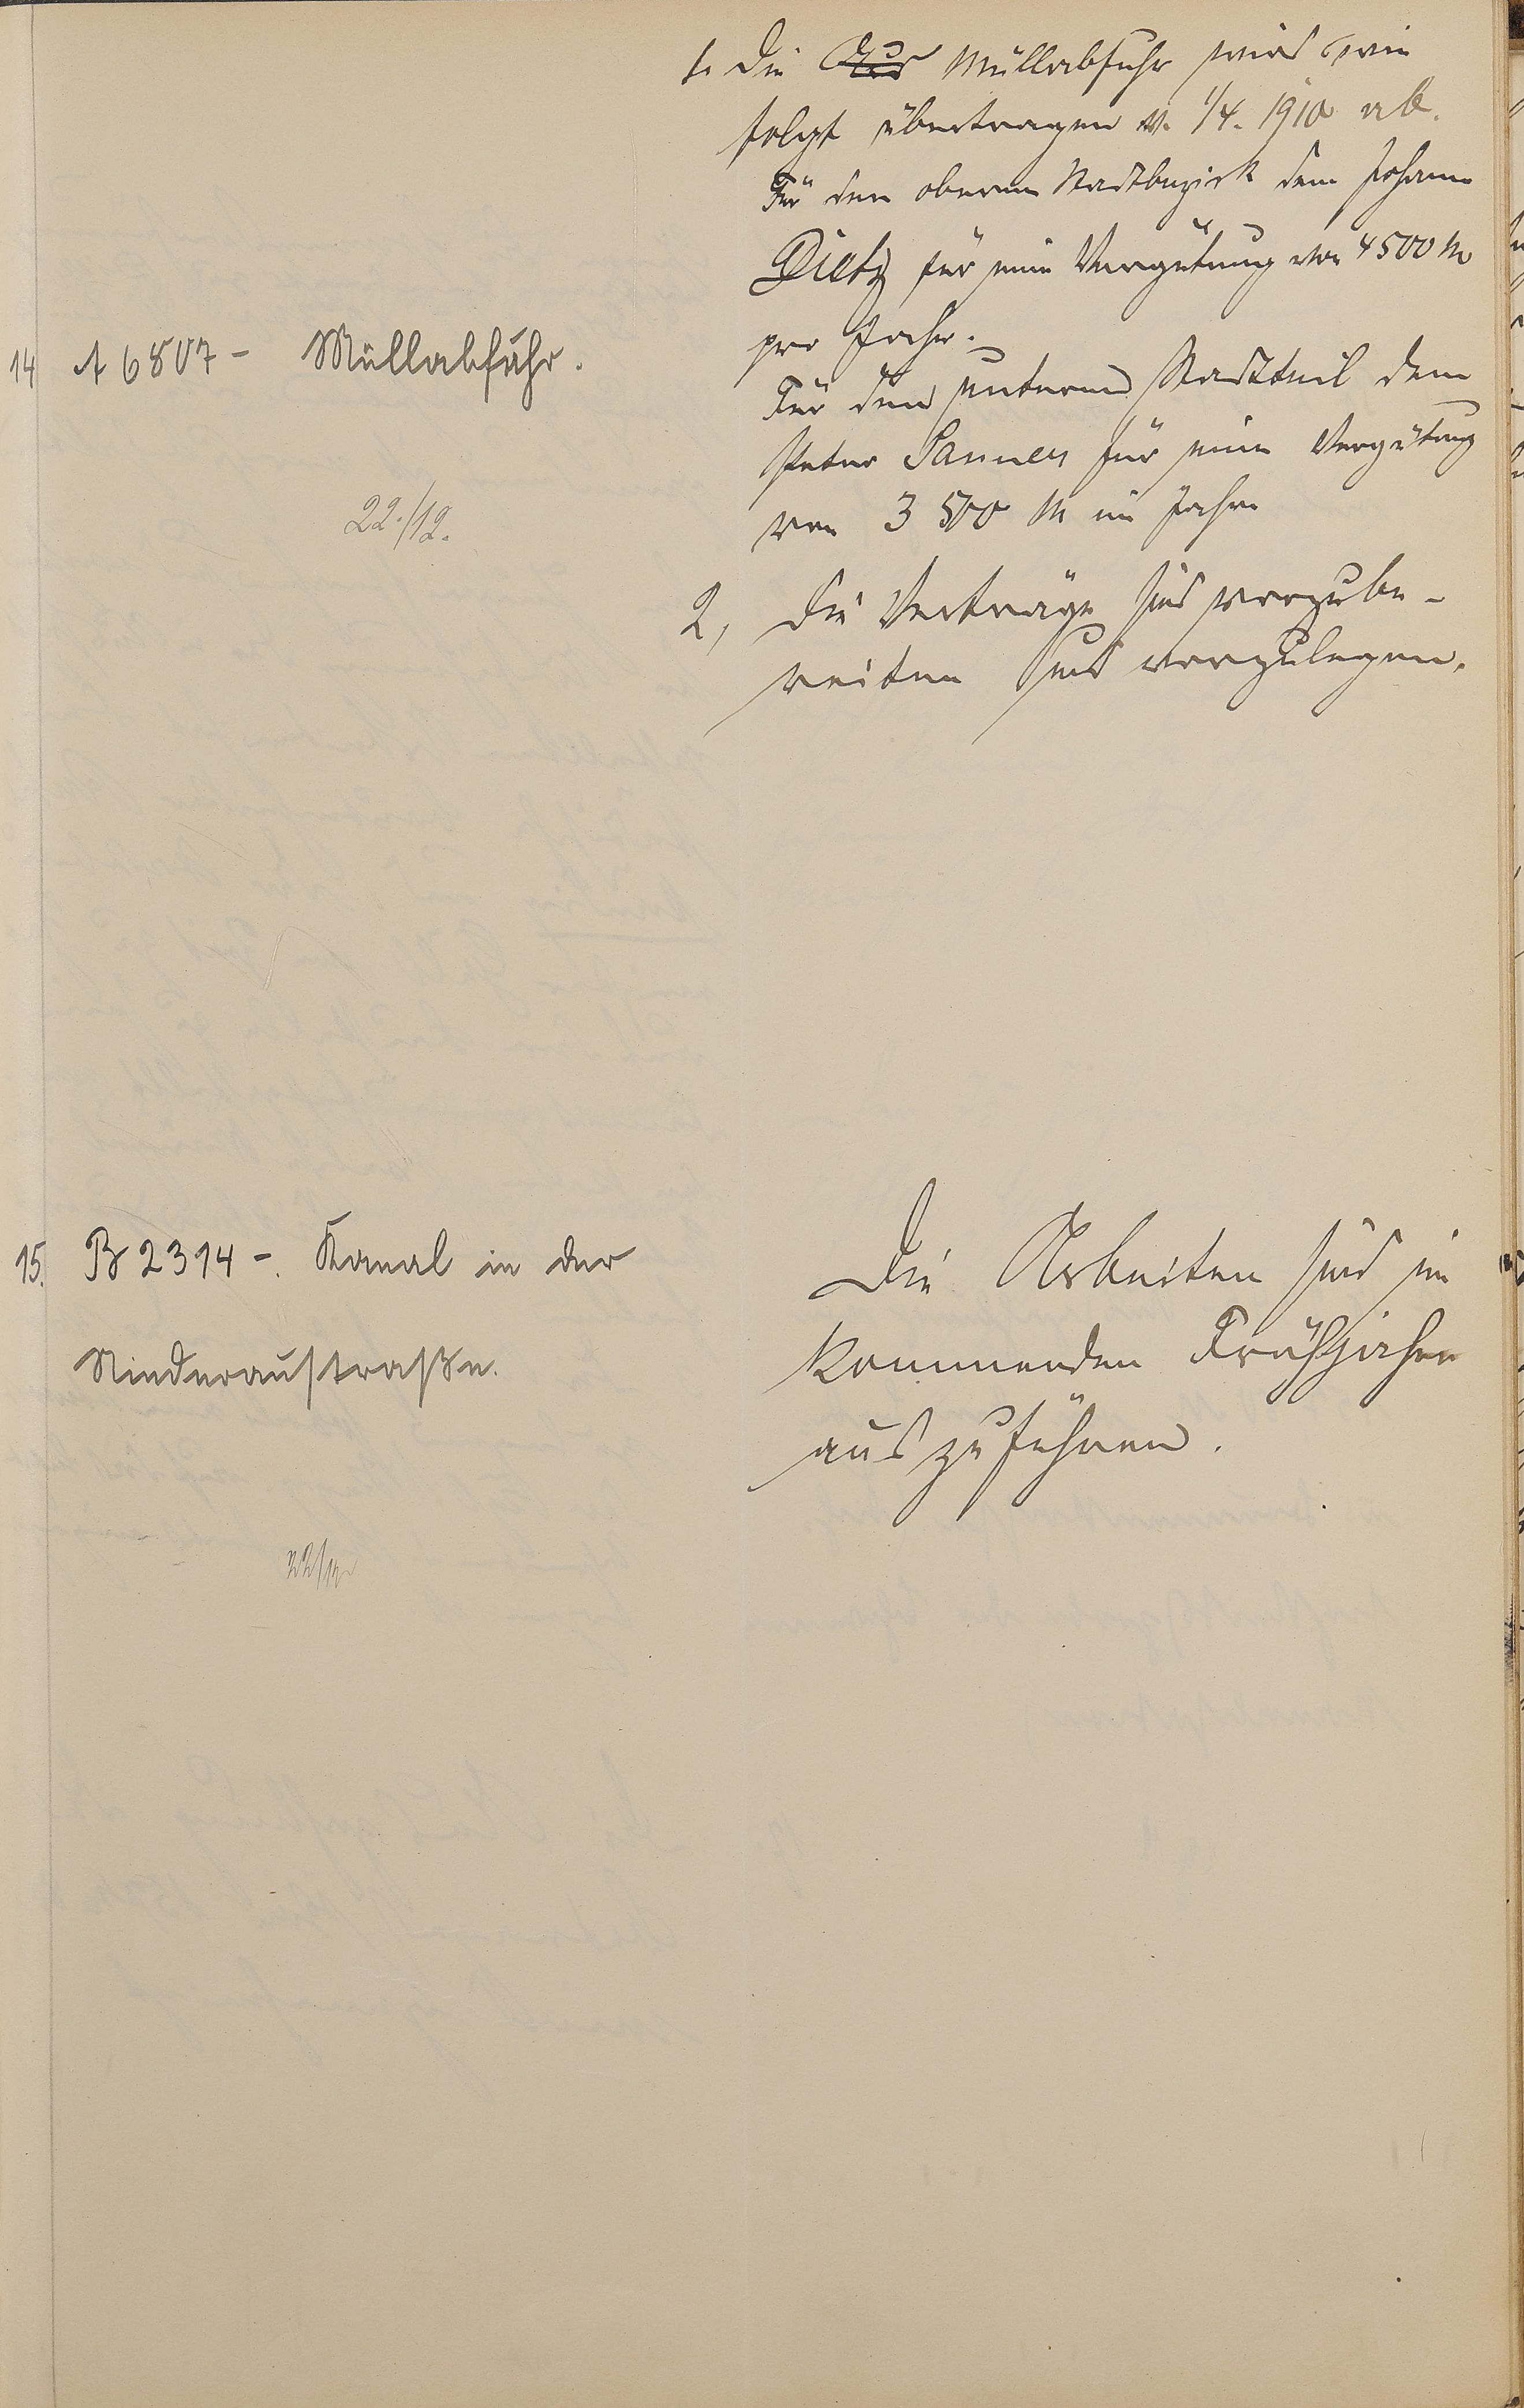 14 A 6807 - Müllabfuhr.
22./12.
1. Die Aus Müllabfuhr wird wie
folgt übertragen v. 1/4. 1910 ab.
Für den oberen Stadtbezirk dem Johann
Dietz für eine Vergütung von 4500 M
pro Jahr.
Für den unteren Stadtteil dem
Peter Sannes für eine Vergütung
von 3 500 M im Jahre
2, Die Verträge sind vorzube-
reiten und vorzulegen.
15. B 2314 -. Kanal in der
Niederaustraße.
22/12.
Die Arbeiten sind im
kommenden Frühjahre
auszuführen.